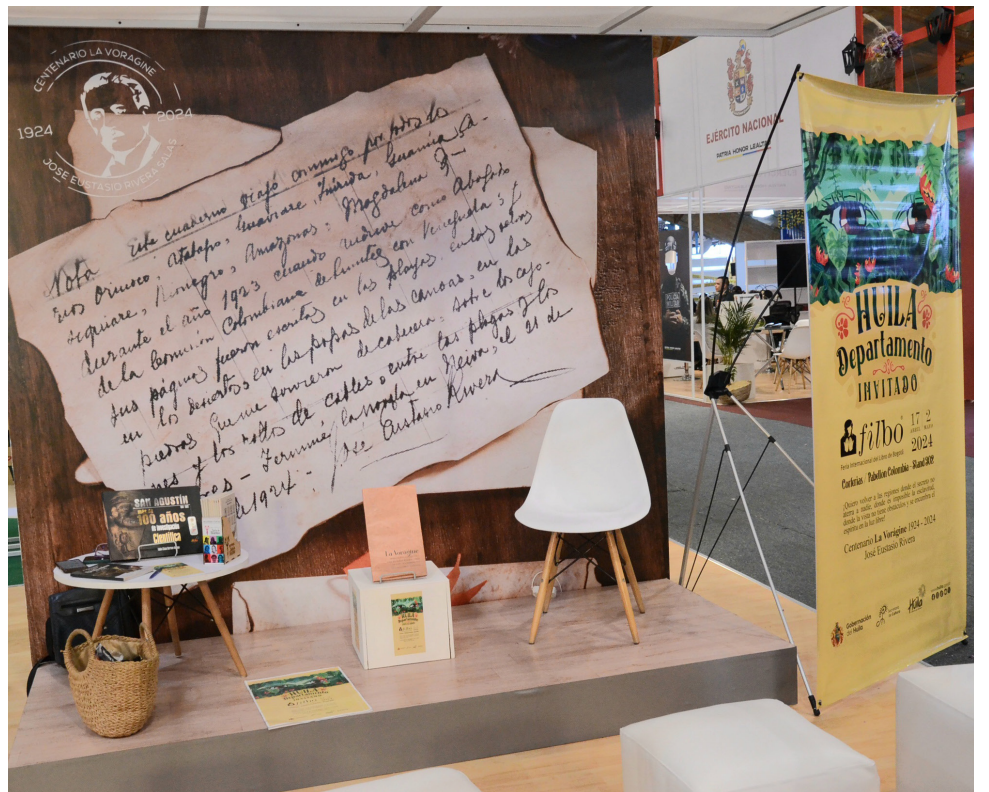 CENTENARIO LA VORÁGINE
1924
2024
JOSE EUSTASIO RIVERA SALAS
Nota Este cuaderno viajó conmigo por todos los
ríos Orinoco, Atabapo, Guaviare, Inírida, Guainía, Ca-
siquiare, Rionegro, Amazonas, Magdalena,
durante el año 1923 cuando anduve como Abogado
de la Comisión Colombiana de límites con Venezuela; y
sus páginas fueron escritas en las playas, en las selvas
en los desiertos, en las popas de las canoas, en las
piedras que me sirvieron de cabecera, sobre los cajo-
nes y los rollos de cables, o entre las plagas y los
Terminé la novela en Neiva, el 21 de
de 1924.
José Eustasio Rivera
SAN AGUSTÍN
100 años
Científica
La Vorágine
HUILA
Departamento
EJÉRCITO NACIONAL
PATRIA HONOR LEALTAD
HUILA
Departamento
INVITADO
filbo
17 2
ABRIL MAYO
2024
Feria Internacional del Libro de Bogotá
Corferias / Pabellon Colombia - Stand 302
Centenario La Vorágine 1924 - 2024
José Eustasio Rivera
Gobernación
del Huila
Huila